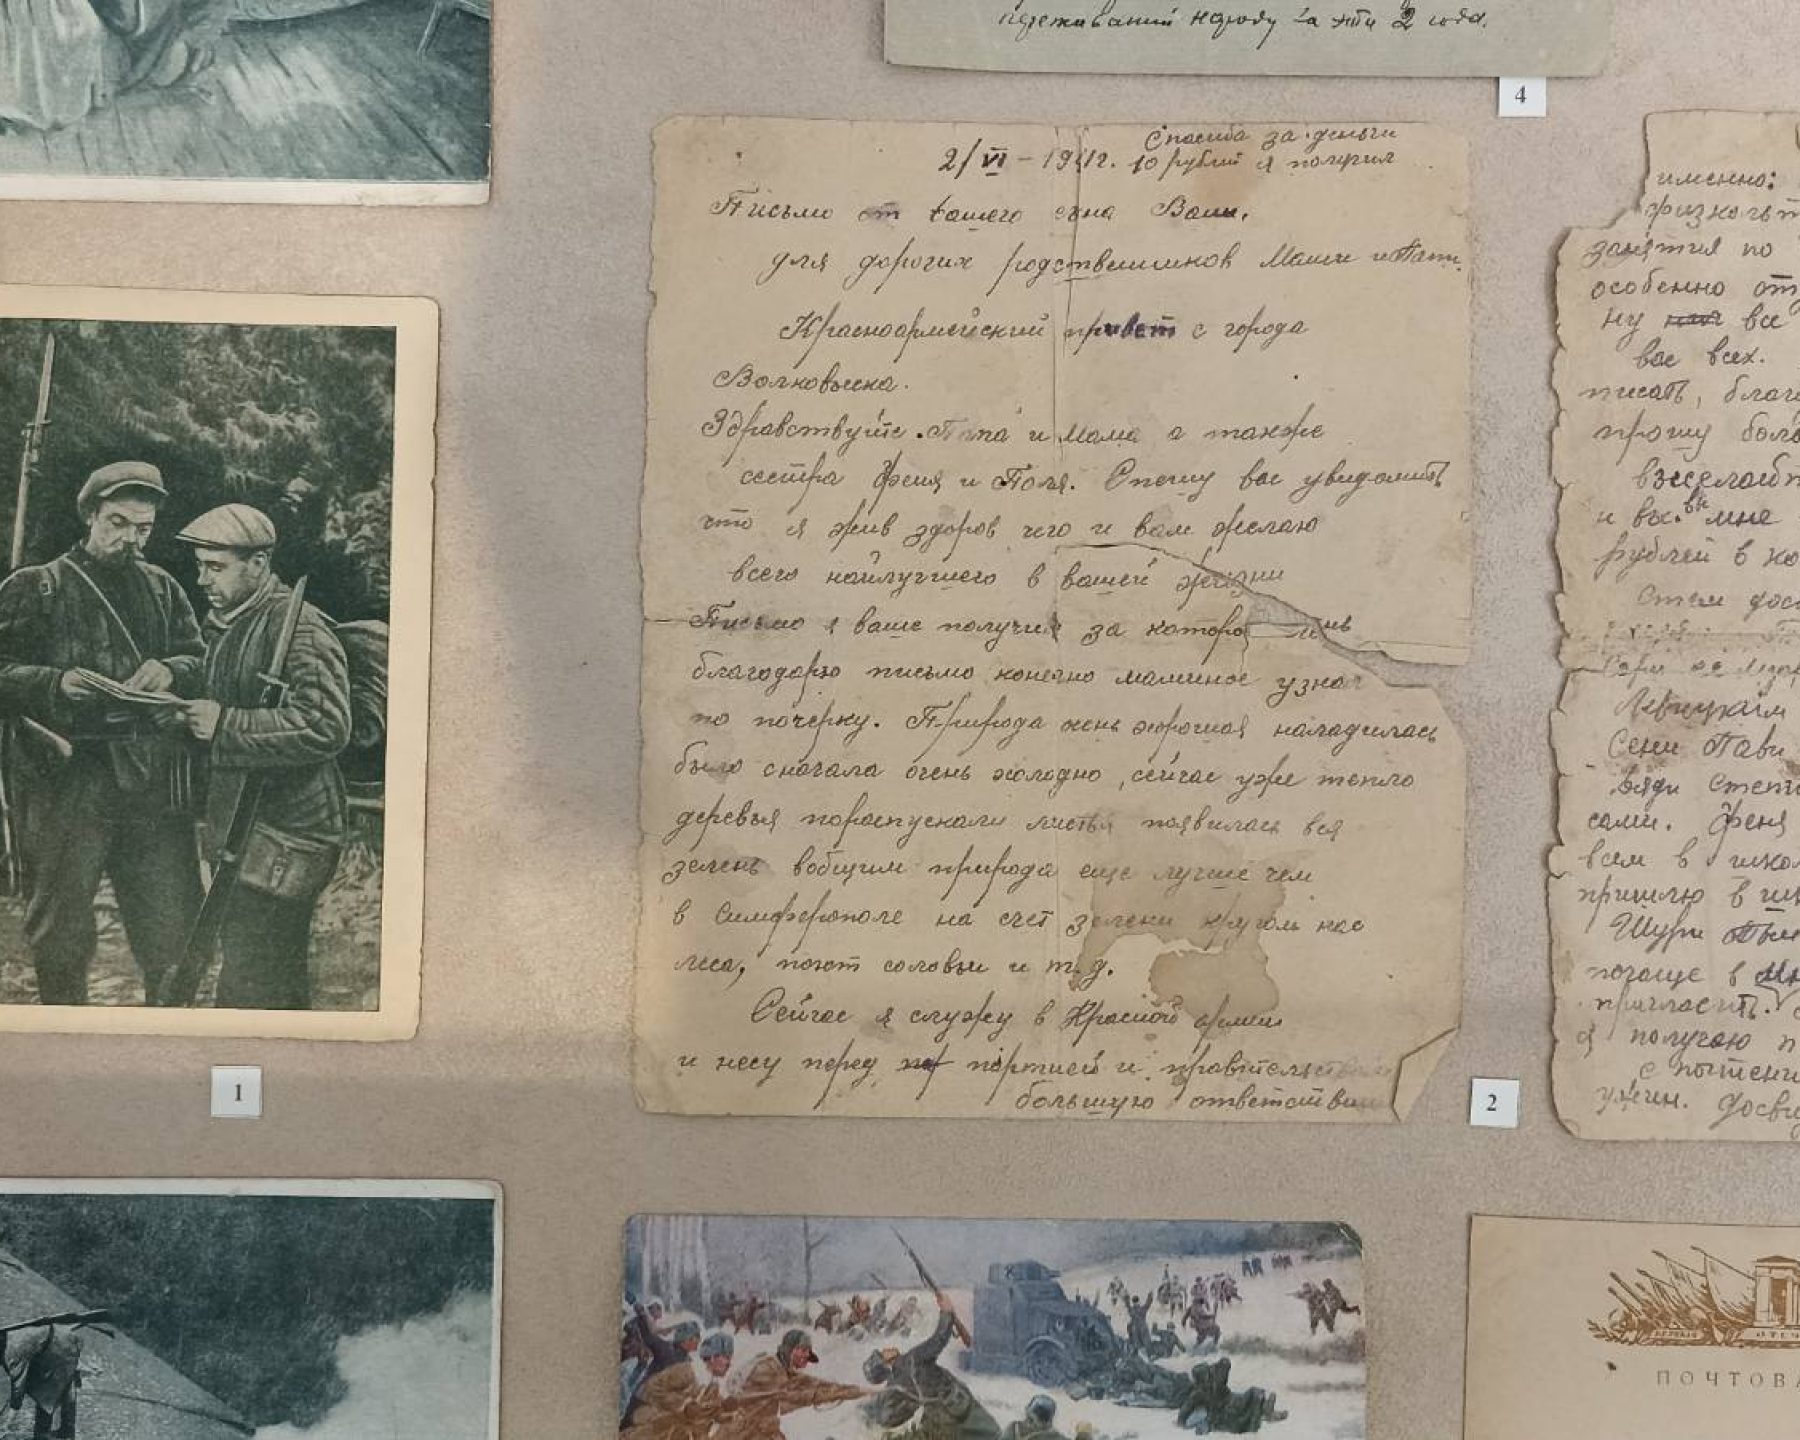 переживаний народу за эти 2 года.
4
Спасиба за деньги
2/VI – 1941г. 10 рублий я получил
Письмо от вашего сына Вани.
для дорогих родственников Маши и Пати.
Красноармейский привет с города
Волковыска.
Здравствуйте. Папа и Мама а также
сестра Феня и Поля. Спешу вас уведомить
что я жив здоров чего и вам желаю
всего найлучшего в вашей жизни
Письмо я ваше получил за которо
благодарю письмо конечно мамино узнал
по почерку. Природа очень хорошая наладилась
было сначала очень холодно, сейчас уже тепло
деревья пораспускали листья появилась вся
зелень вобщим природа еще лучше чем
в Симферополе на счет зелени кругом нас
леса, поют соловьи и т.д.
Сейчас я служу в Красной армии
и несу перед партией и правительством
большую ответстви
1
2
именно:
физкульт
занятия по
особенно от
ну все
вас всех.
писать, благ
прошу боль
и вы мне
рублей в
Стем дос
Левицким
Сени Пави
Дяди Степ
сами. Феня
всем в школ
пришлю в
Шури
почаще в
пригласить.
я получаю п
с почтени
ужин. Досви
ПОЧТОВА